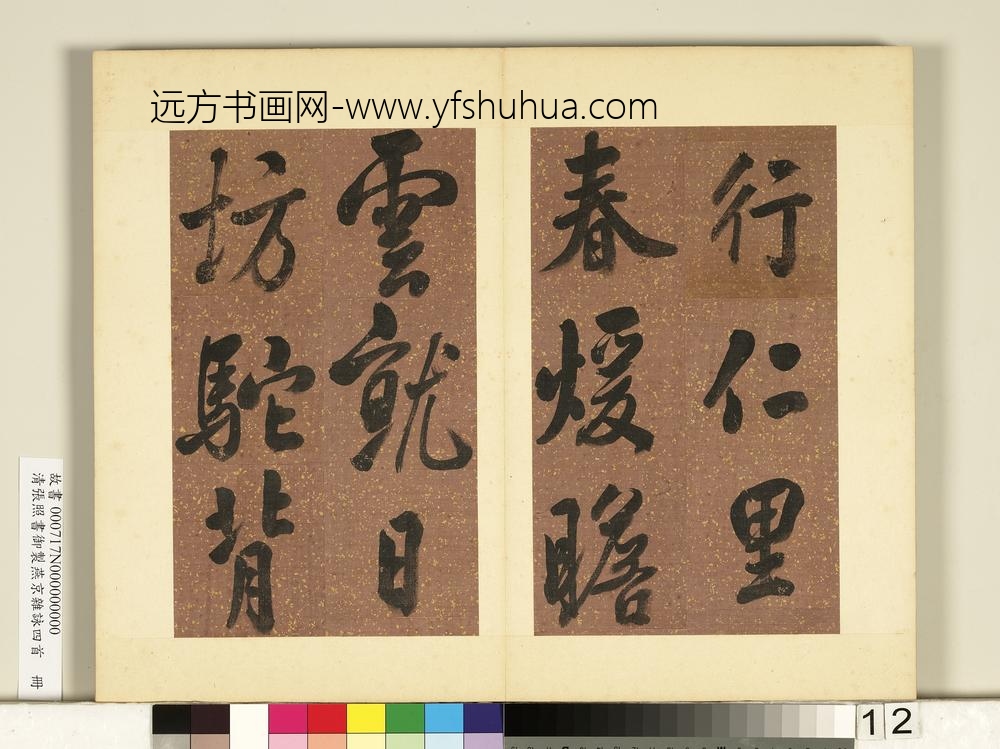 远方书画网-www.yfshuhua.com
行仁里
春煖瞻
雲就日
坊駝背
故書 000717N000000000
清張照書御製燕京雜詠四首 冊
12